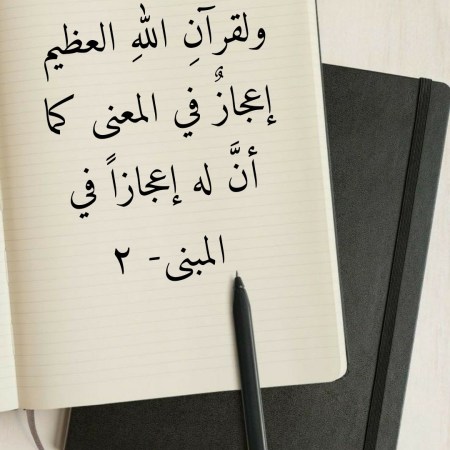 ولقرآنِ اللهِ العظيم
إعجازٌ في المعنى كما
أنَّ له إعجازاً في
المبنى- ٢